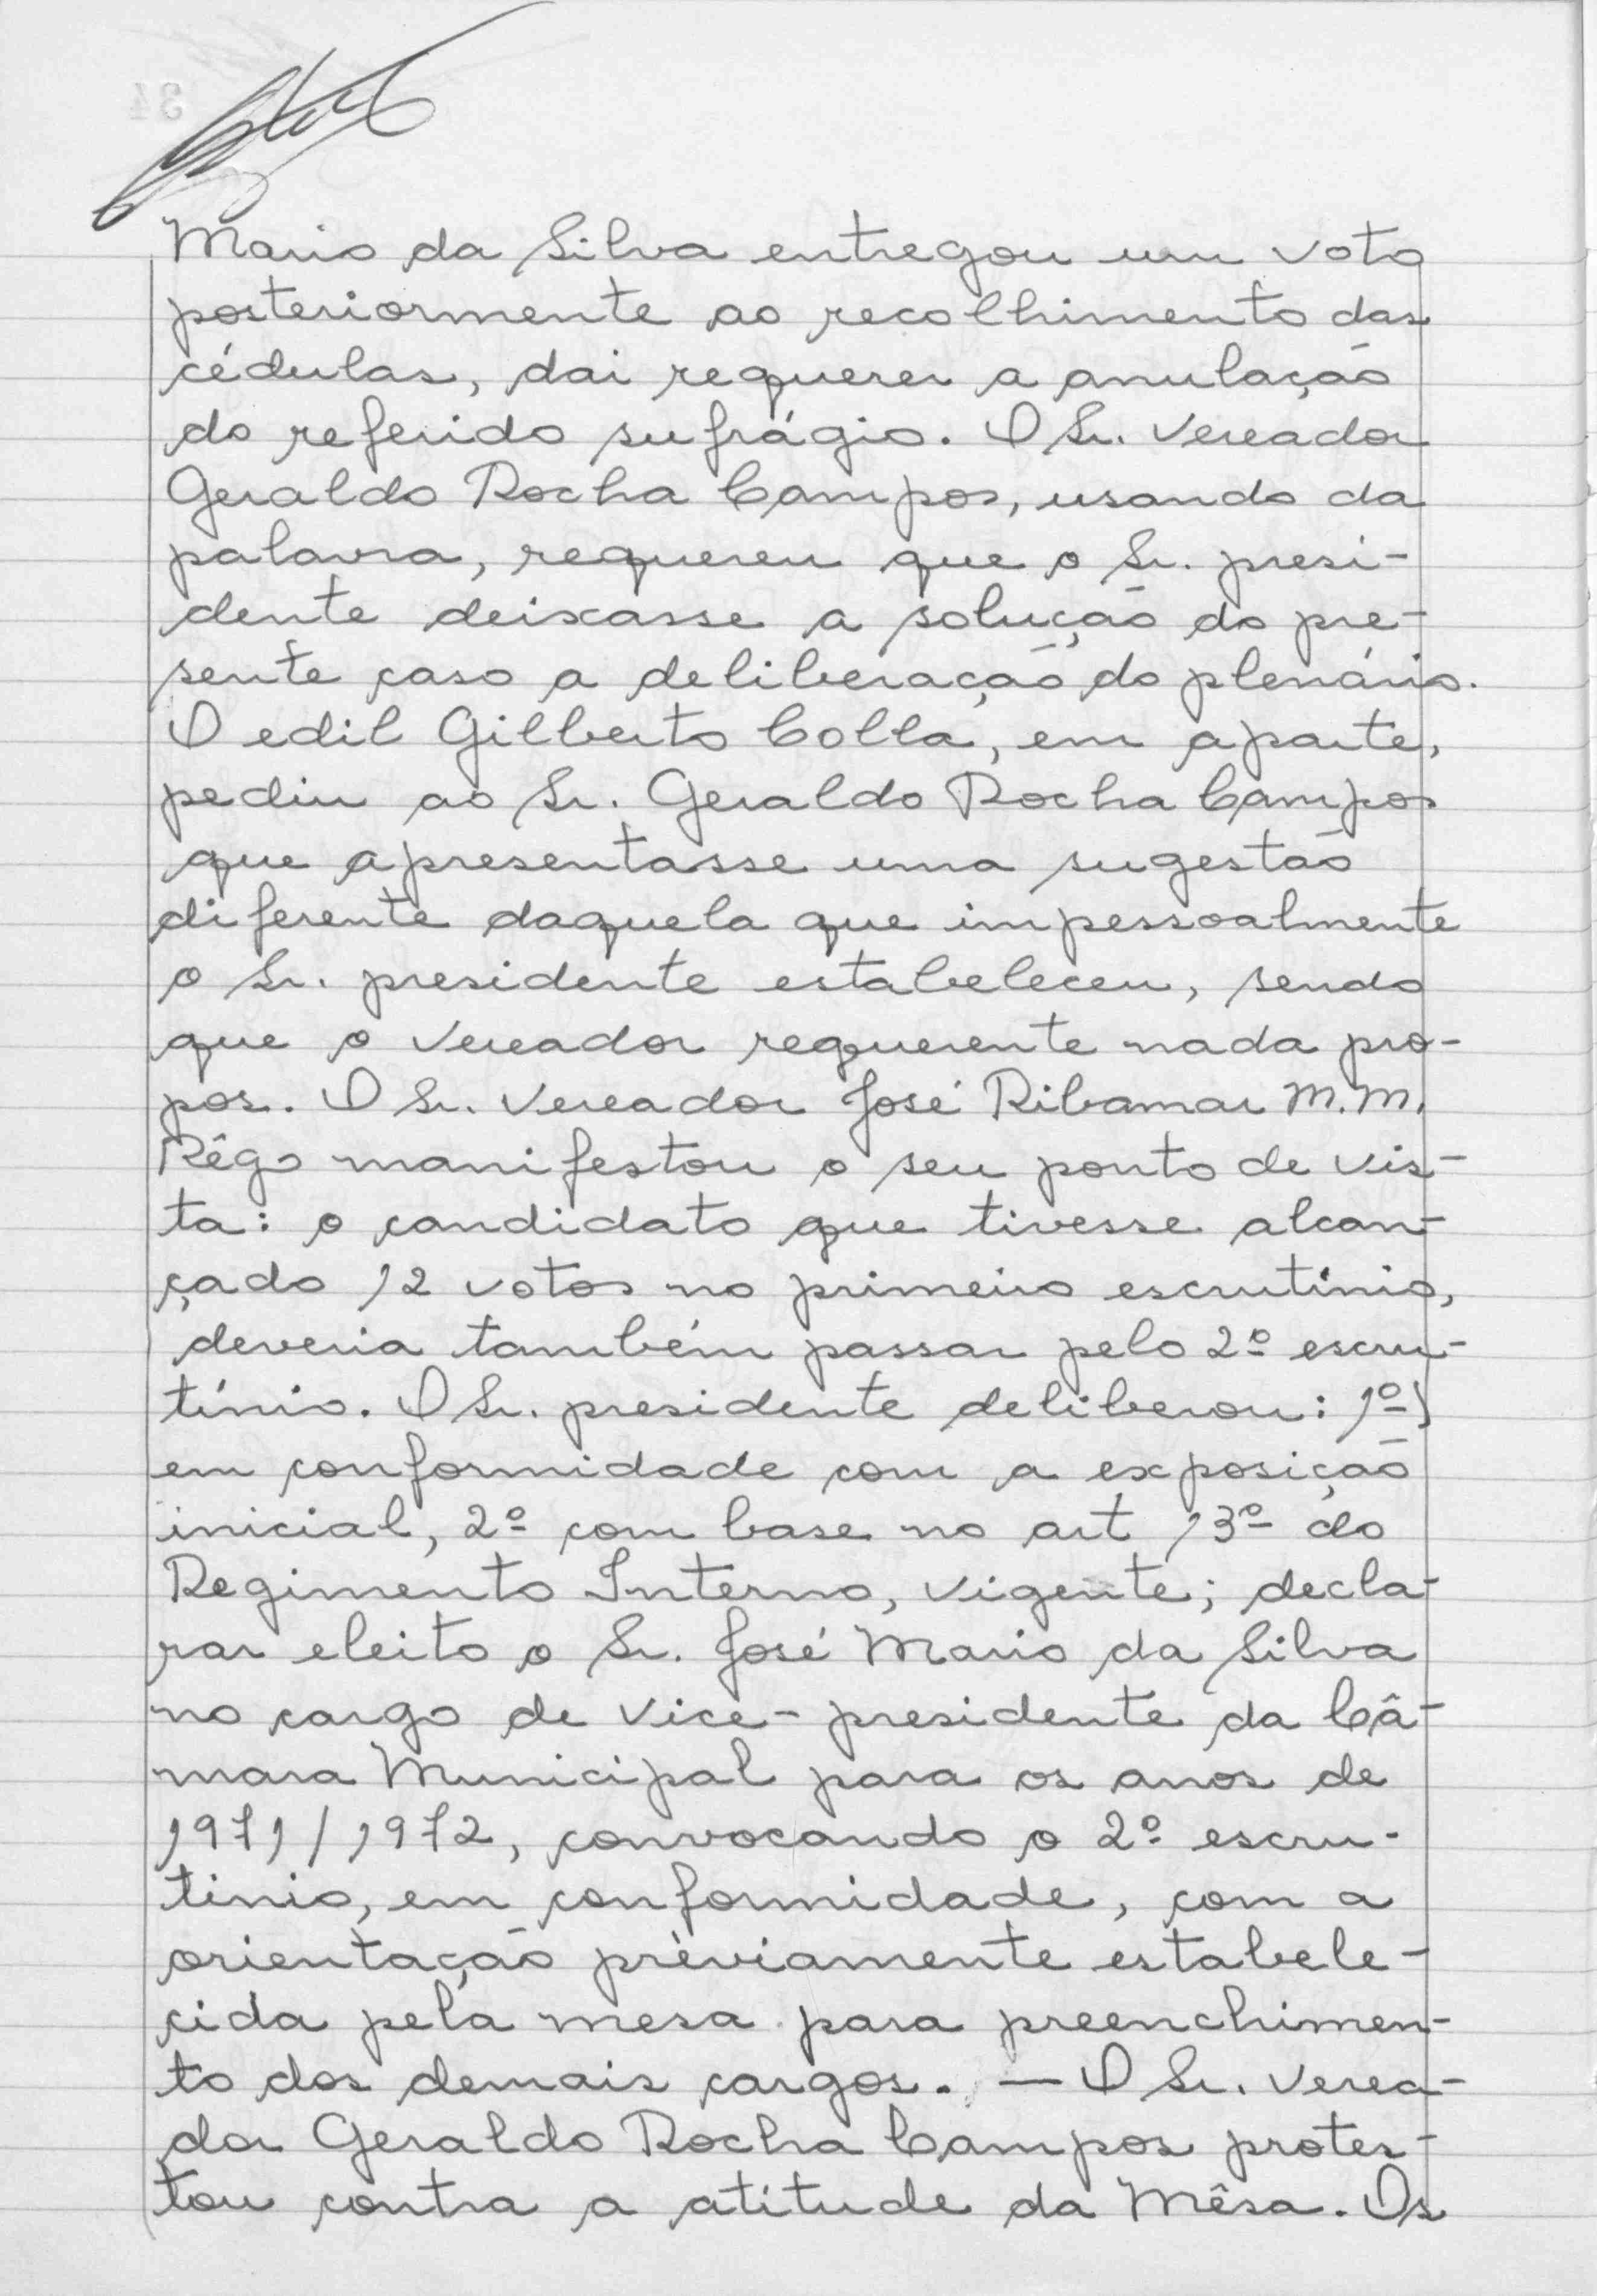 Mario da Silva entregou um voto
posteriormente ao recolhimento das
cédulas, dai requerer a anulação
do referido sufrágio. O Sr. Vereador
Geraldo Rocha Campos, usando da
palavra, requereu que o Sr. presi-
dente deixasse a solução do pre-
sente caso a deliberação do plenário.
O edil Gilberto Colla, em aparte,
pediu ao Sr. Geraldo Rocha Campos
que apresentasse uma sugestão
diferente daquela que impessoalmente
o Sr. presidente estabeleceu, sendo
que o Vereador requerente nada pro-
pos. O Sr. Vereador José Ribamar M.M.
Rêgo manifestou o seu ponto de vis-
ta: o candidato que tivesse alcan-
çado 12 votos no primeiro escrutínio,
deveria também passar pelo 2º escru-
tínio. O Sr. presidente deliberou: 1º)
em conformidade com a exposição
inicial, 2º com base no art 13º do
Regimento Interno, vigente; decla-
rar eleito o Sr. José Mario da Silva
no cargo de Vice-presidente da Câ-
mara Municipal para os anos de
1971/1972, convocando o 2º escru-
tinio, em conformidade, com a
orientação prèviamente estabele-
cida pela mesa para preenchimen-
to dos demais cargos. — O Sr. Verea-
dor Geraldo Rocha Campos protes-
tou contra a atitude da Mêsa. Os